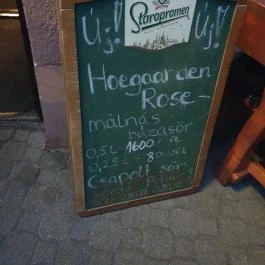 Új! Staropramen Új!
Hoegaarden
Rose -
málnás
búzasör
0,5l 1600 Ft
0,25l - 80
Csapolt sör